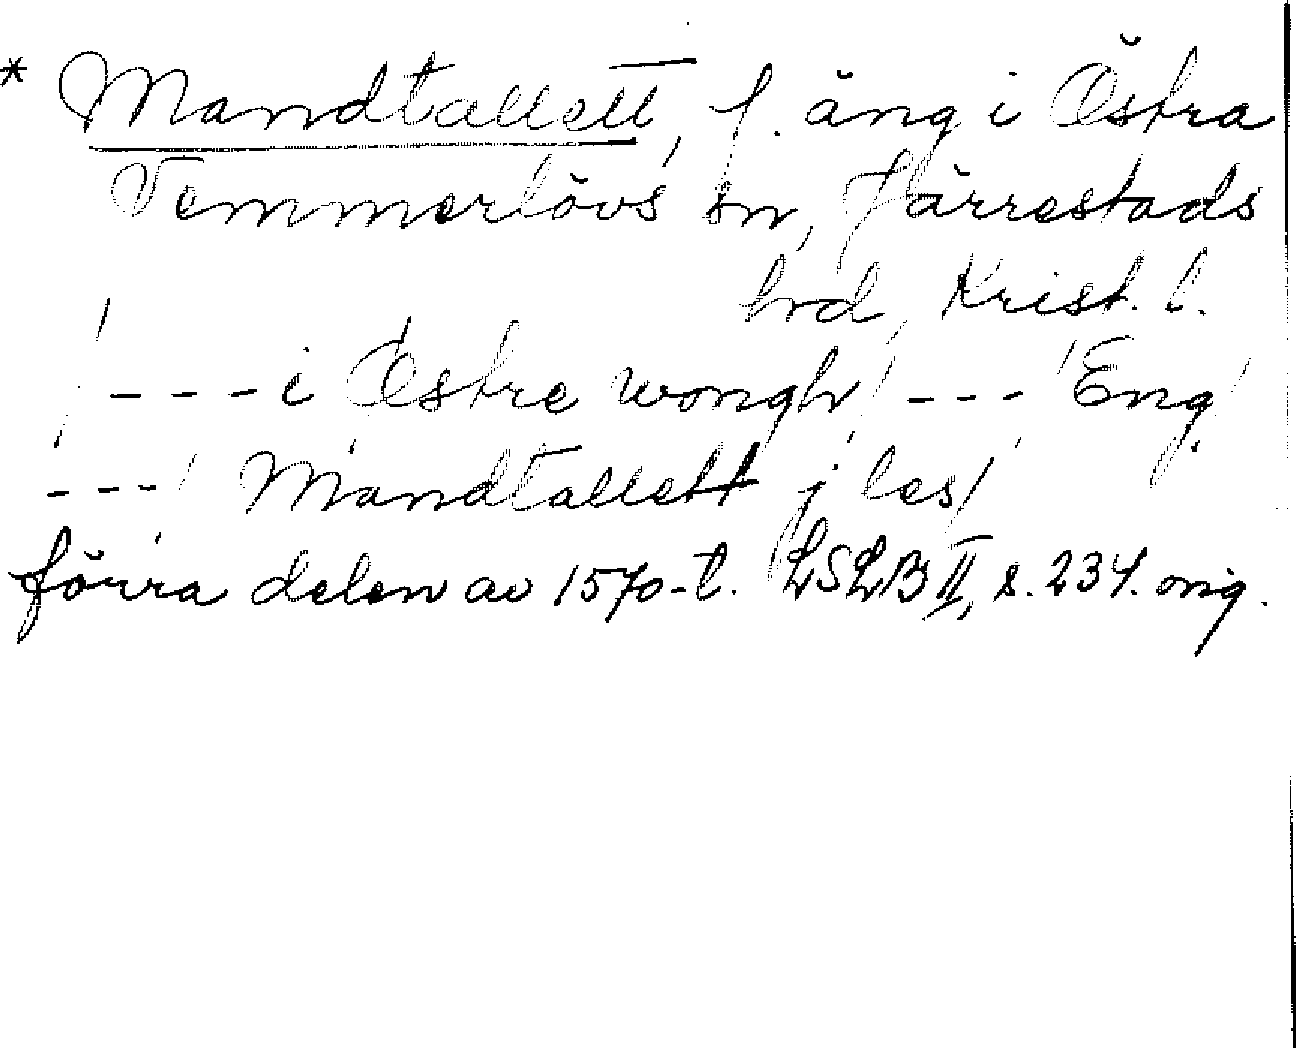 * Mandtallett, f. äng i Östra
Vemmerlövs sn, Järrestads
hrd, Krist. l.
/---i Østre wongh/ --- Eng
---/ Mandtallett j les/
förra delen av 1570-t. LSLB II, s. 234. orig.